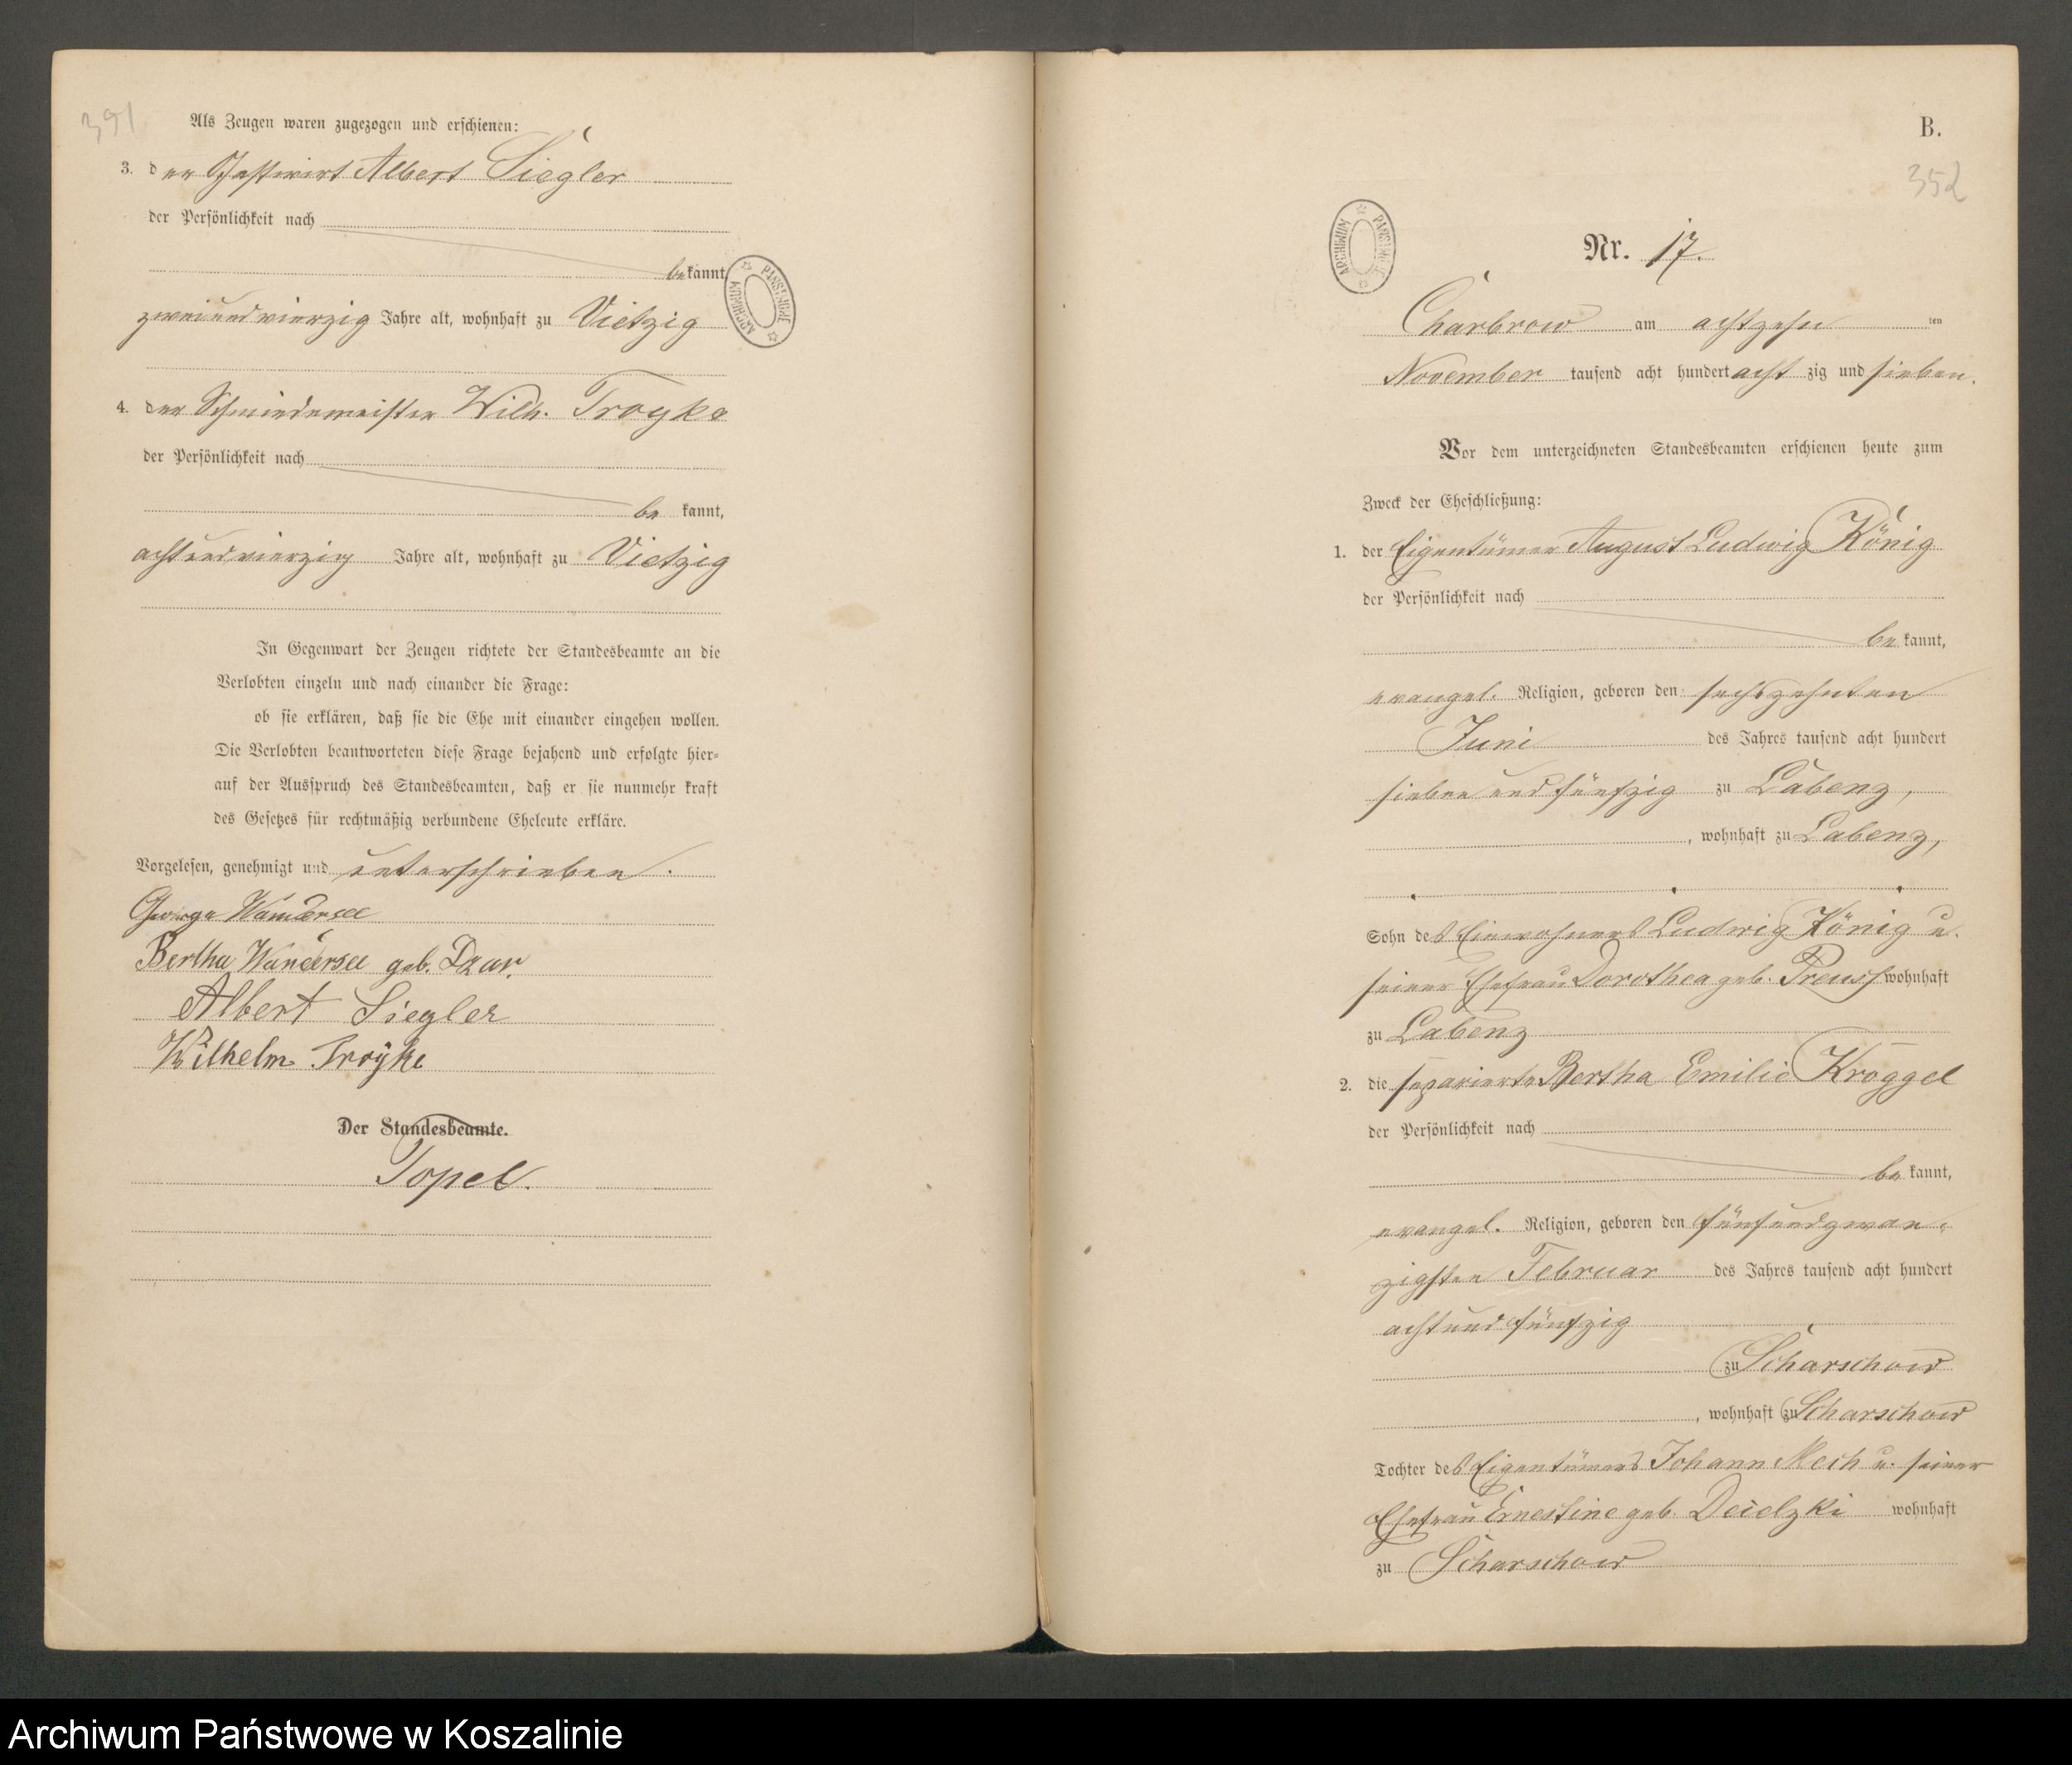 391
Als Zeugen waren zugezogen und erschienen:
3. der Gastwirt Albert Siegler
der Persönlichkeit nach
bekannt
zweiundvierzig Jahre alt, wohnhaft zu Vietzig
4. der Schmiedemeister Wilh. Troyke
der Persönlichkeit nach
be kannt,
achtundvierzig Jahre alt, wohnhaft zu Vietzig
In Gegenwart der Zeugen richtete der Standesbeamte an die
Verlobten einzeln und nach einander die Frage:
ob sie erklären, daß sie die Ehe mit einander eingehen wollen.
Die Verlobten beantworteten diese Frage bejahend und erfolgte hier-
auf der Ausspruch des Standesbeamten, daß er sie nunmehr kraft
des Gesetzes für rechtmäßig verbundene Eheleute erkläre.
Vorgelesen, genehmigt und unterschrieben.
George Wandersee
Bertha Wandersee geb.
Albert Siegler
Wilhelm Troyke
Der Standesbeamte.
Topel.
ARCHIWUM PAŃSTWOWE
B.
352
ARCHIWUM PAŃSTWOWE
Nr. 17.
Charbrow am achtzehn ten
November tausend acht hundert acht zig und sieben.
Vor dem unterzeichneten Standesbeamten erschienen heute zum
Zweck der Eheschließung:
1. der Eigentümer August Ludwig König
der Persönlichkeit nach
be kannt,
evangel. Religion, geboren den sechszehnten
Juni des Jahres tausend acht hundert
sieben und fünfzig zu Labenz,
, wohnhaft zu Labenz,
Sohn des Einwohners Ludwig König u.
seiner Ehefrau Dorothea geb. Preuss wohnhaft
zu Labenz
2. die separierte Bertha Emilie Kroggel
der Persönlichkeit nach
be kannt,
evangel. Religion, geboren den fünfundzwan-
zigsten Februar des Jahres tausend acht hundert
achtundfünfzig
zu Scharschow
, wohnhaft zu Scharschow
Tochter des Eigentümers Johann Mech u. seiner
Ehefrau Ernestine geb. wohnhaft
zu Scharschow
Archiwum Państwowe w Koszalinie